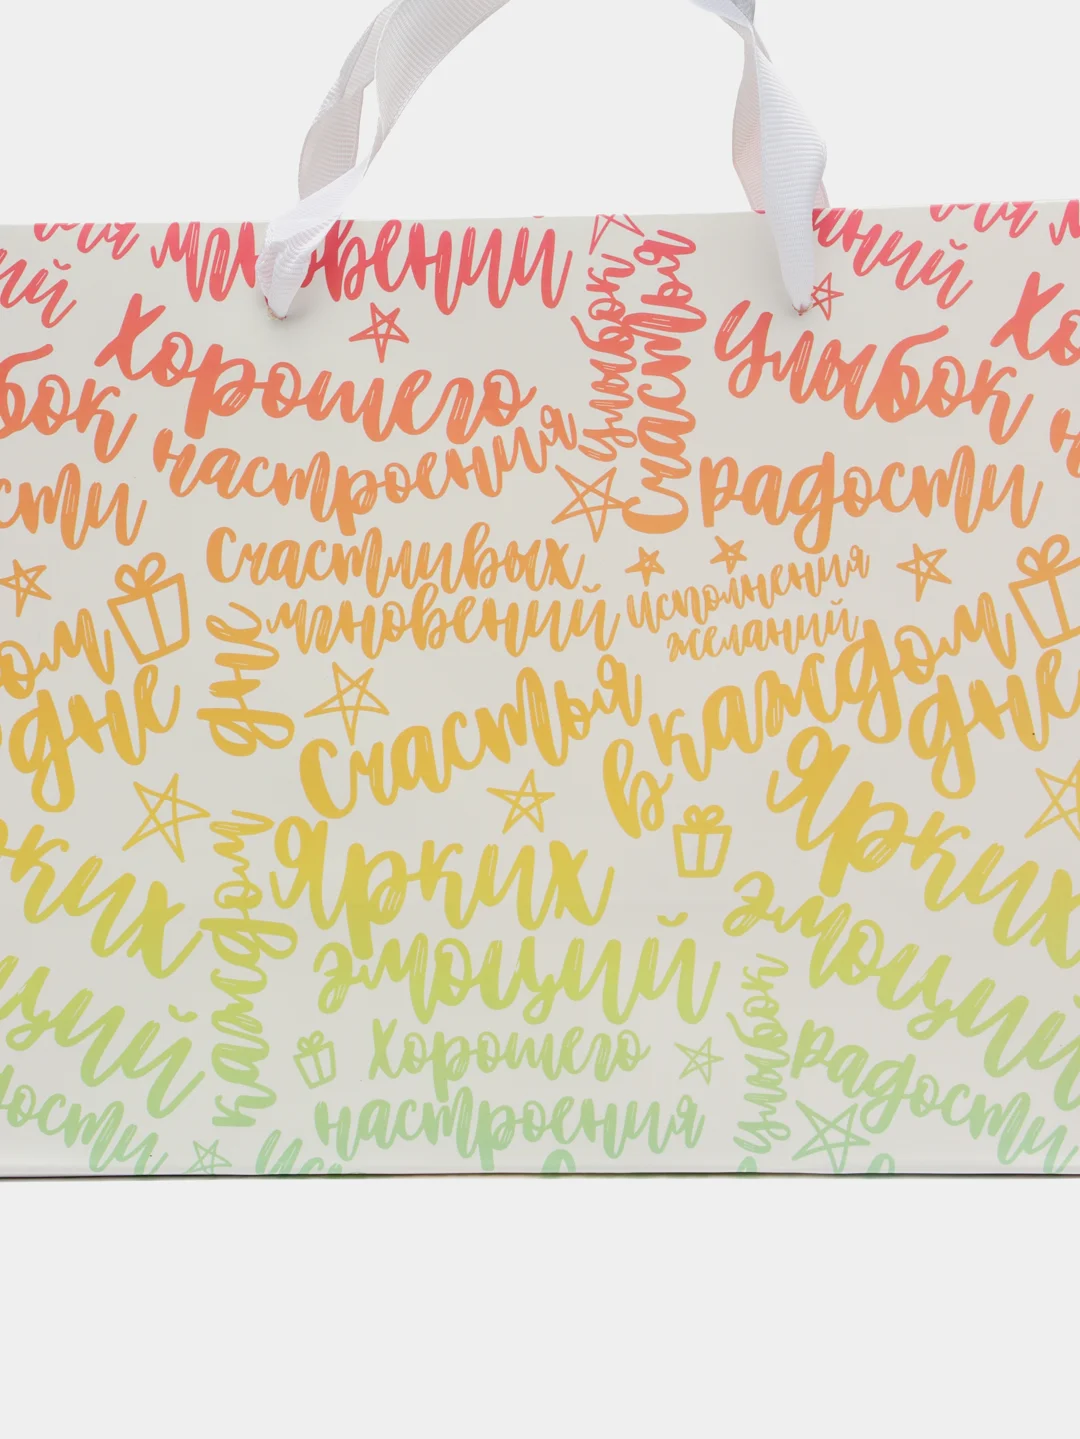 мгновений
Хорошего
настроения
улыбок
Счастья
Улыбок
радости
Счастливых
мгновений
исполнения
желаний
дне
дне
Счастья
в каждом
дне
Ярких
эмоций
каждом
Ярких
эмоций
Хорошего
настроения
улыбок
радости